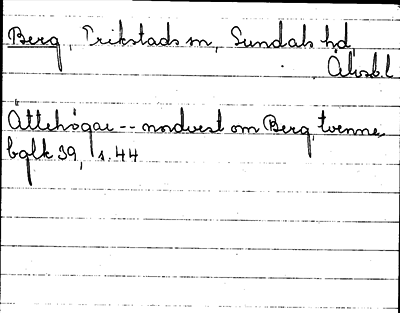 Berg, Frikstads sn, Sundals hd,
Älvsb. l
Ättehögar -- nordvest om Berg, tvenne
bglk 39, s. 44